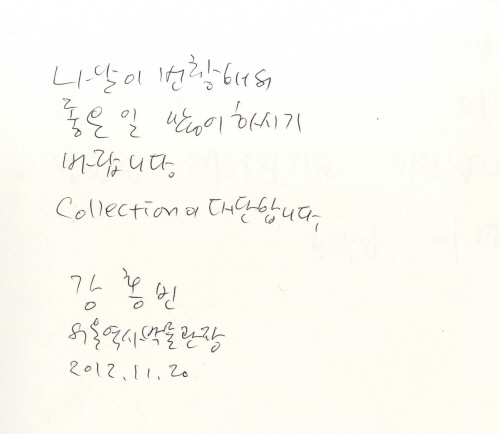 나날이 번창해서
좋은 일 많이 하시기
바랍니다.
Collection이 대단합니다.
강홍빈
서울역사박물관장
2012.11.20